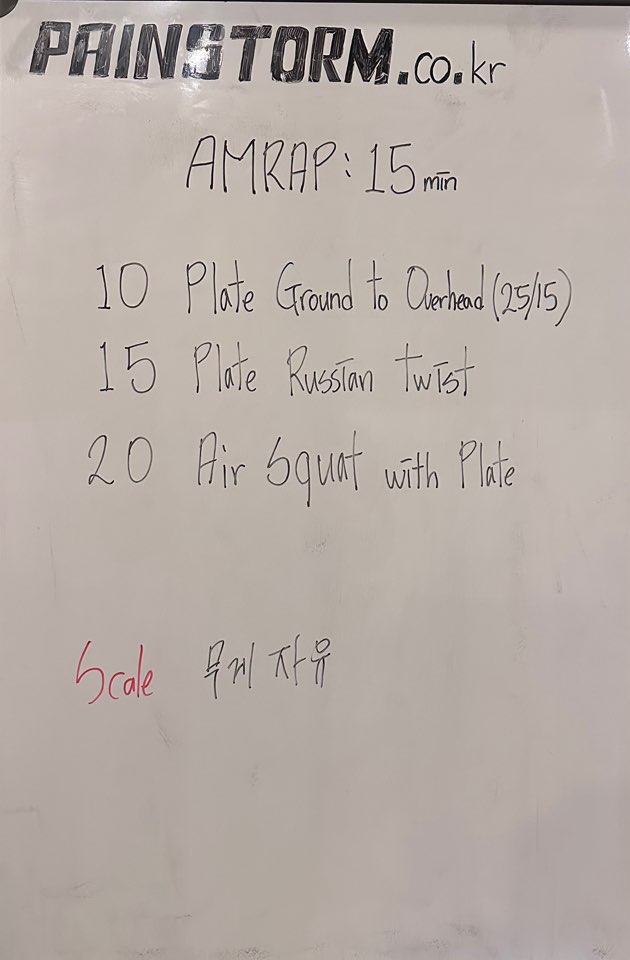 PAINSTORM.co.kr
AMRAP: 15 min
10 Plate Ground to Overhead (25/15)
15 Plate Russian twist
20 Air Squat with Plate
Scale 무게 자유